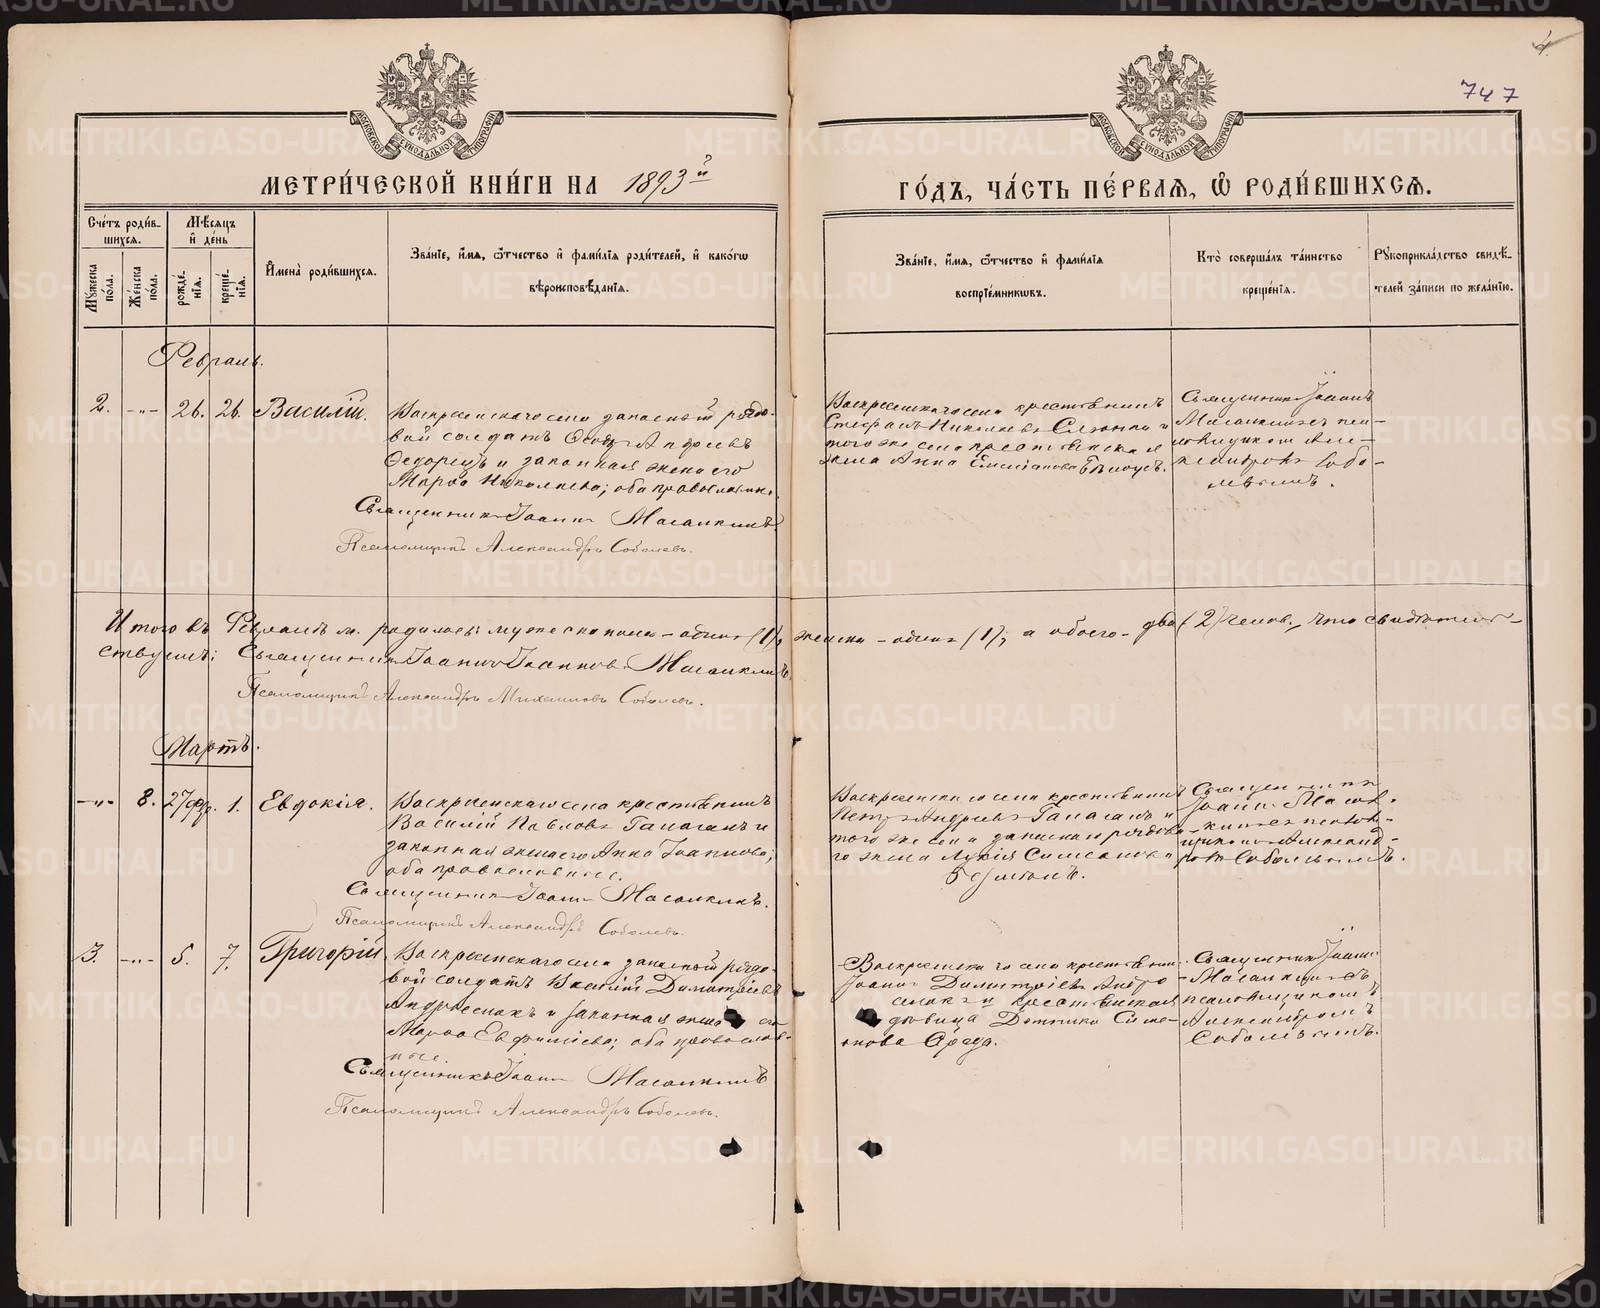 4.
747
МОСКОВСКОЙ СѴНОДАЛЬНОЙ ТИПОГРАФІИ
МОСКОВСКОЙ СѴНОДАЛЬНОЙ ТИПОГРАФІИ
МЕТРИ́ЧЕСКОЙ КНИ́ГИ НА 1893й
ГО́ДЪ, ЧА́СТЬ ПЕ́РВАѦ, Ѡ҆ РОДИ́ВШИХСѦ.
Сче́тъ роди́в-
шихсѧ.
Мѣ́сѧцъ
и҆ де́нь
Му́жеска
по́ла.
Же́нска
по́ла.
рожде́-
нїѧ.
креще́-
нїѧ.
И҆мена̀ роди́вшихсѧ.
Зва́нїе, и҆́мѧ, ѻ҆́тчество и҆ фами́лїѧ роди́телей, и҆ како́гѡ
вѣроисповѣ́данїѧ.
Зва́нїе, и҆́мѧ, ѻ҆́тчество и҆ фами́лїѧ
воспрїе́мникѡвъ.
Кто̀ соверша́лъ та́инство
креще́нїѧ.
Рꙋкоприкла́дство свидѣ́-
телей за́писи по жела́нїю.
Февраль.
2. -"- 26. 26. Василій.
Воскресенскаго села запасный рядо-
вой солдатъ
Ѳедорецъ и законная жена его
Марѳа Николаева; оба православные.
Священникъ Іоаннъ Масалкинъ
Псаломщикъ Александръ Соболевъ.
Воскресенскаго села крестьянинъ
Стефанъ Николаевъ и
того же села крестьянская
жена Анна Емеліанова Бѣлоусъ.
Священникъ Іоаннъ
Масалкинъ съ псал-
омщикомъ Алек-
сандромъ Собо-
левымъ.
Итого въ Февралѣ м. родилось: мужеска пола - одинъ (1), женска - одна (1), а обоего - два (2) челов., что свидѣтель-
ствуемъ: Священникъ Іоаннъ Іоанновъ Масалкинъ.
Псаломщикъ Александръ Михаиловъ Соболевъ.
Мартъ.
-"- 8. 27 фев. 1. Евдокія.
Воскресенскаго села крестьянинъ
Василій Павловъ Гапаганъ и
законная жена его Анна Іоаннова;
оба православные.
Священникъ Іоаннъ Масалкинъ.
Псаломщикъ Александръ Соболевъ.
Воскресенскаго села крестьянинъ
Петръ Андреевъ Гапаганъ и
того же села запаснаго рядова-
го жена Лукія Симеонова
Священникъ
Іоаннъ Масал-
кинъ съ псалом-
щикомъ Александ-
ромъ Соболевымъ.
3. -"- 5. 7. Григорій.
Воскресенскаго села запасный рядо-
вой солдатъ Василій Димитріевъ
и законная жена его
Марѳа Евфиміева; оба православ-
ные.
Священникъ Іоаннъ Масалкинъ
Псаломщикъ Александръ Соболевъ.
Воскресенскаго села крестьянинъ
Іоаннъ Димитріевъ
и крестьянская
вдовица Домника Симе-
онова Середа.
Священникъ Іоаннъ
Масалкинъ съ
псаломщикомъ
Александромъ
Соболевымъ.
METRIKI.GASO-URAL.RU